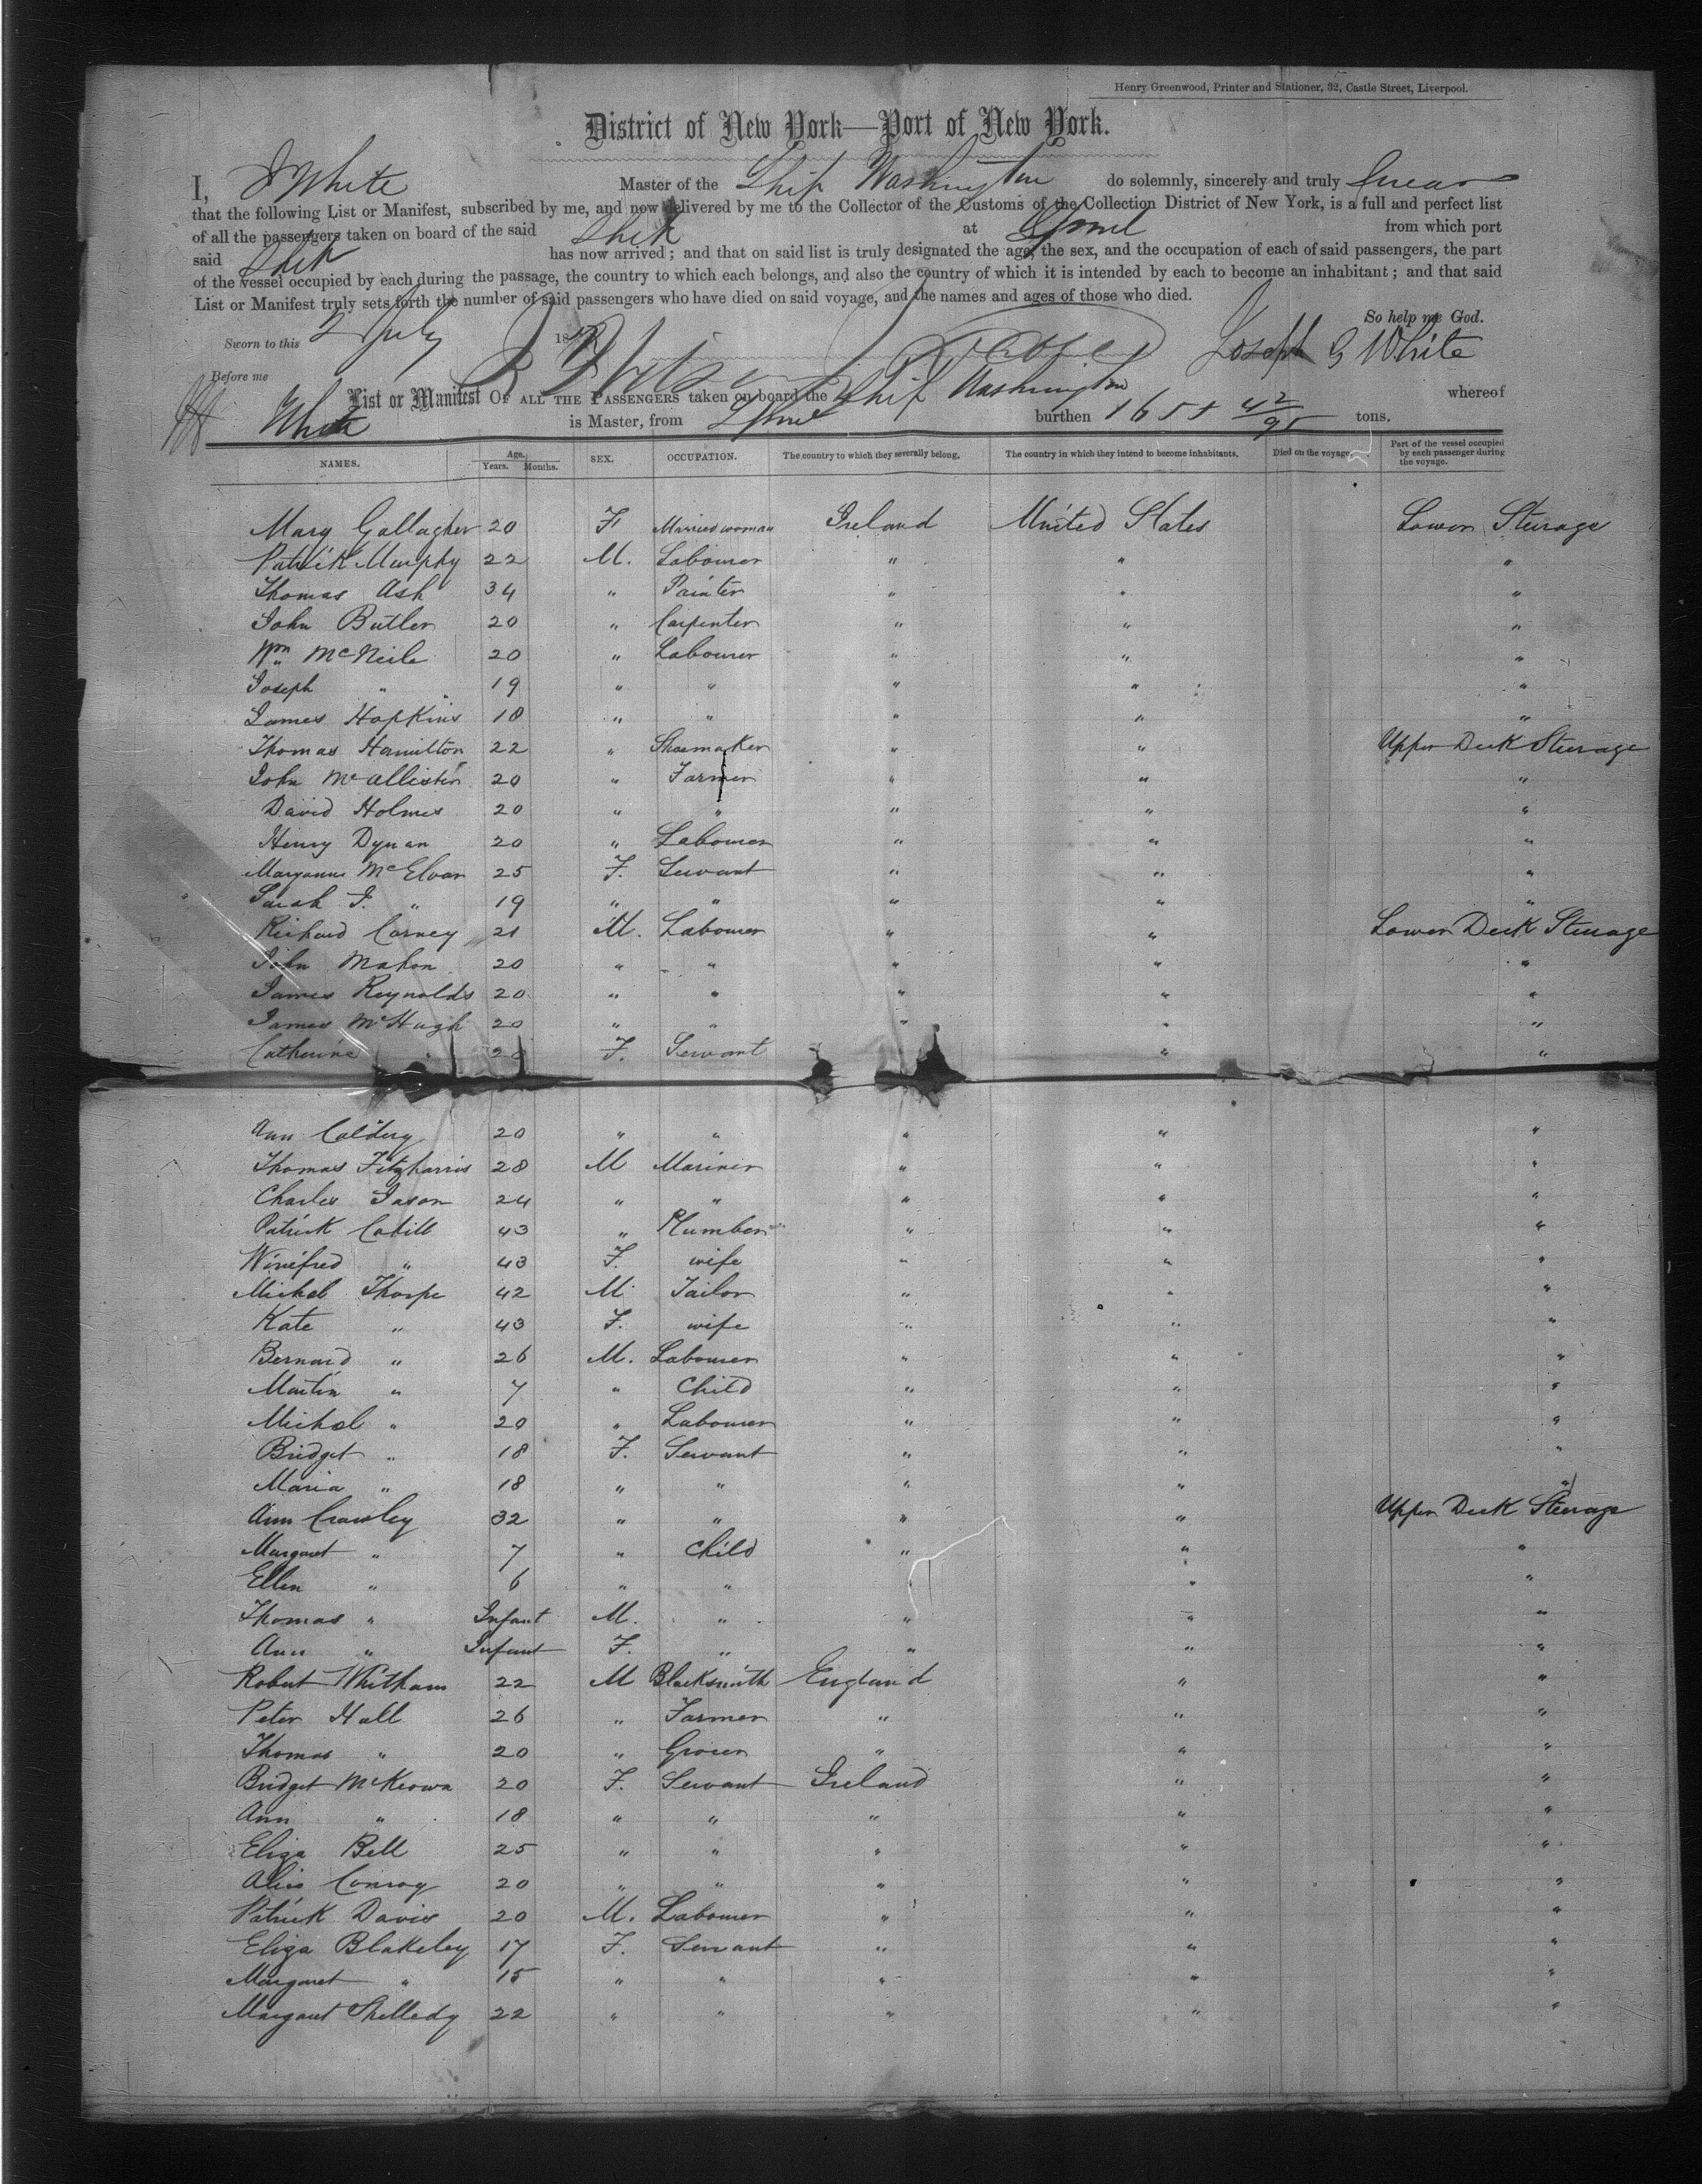 Henry Greenwood, Printer and Stationer, 32, Castle Street, Liverpool.
District of New York—Port of New York.
I, J White Master of the Ship Washington do solemnly, sincerely and truly Swear
that the following List or Manifest, subscribed by me, and now delivered by me to the Collector of the Customs of the Collection District of New York, is a full and perfect list
of all the passengers taken on board of the said Ship at Lpool from which port
said Ship has now arrived; and that on said list is truly designated the age, the sex, and the occupation of each of said passengers, the part
of the vessel occupied by each during the passage, the country to which each belongs, and also the country of which it is intended by each to become an inhabitant; and that said
List or Manifest truly sets forth the number of said passengers who have died on said voyage, and the names and ages of those who died.
So help me God.
Sworn to this 2 July 18 Joseph G White
Before me
List or Manifest OF ALL THE PASSENGERS taken on board the Ship Washington whereof
White is Master, from Lpool burthen 1655 42/95 tons.
NAMES. Age. Years. Months. SEX. OCCUPATION. The country to which they severally belong. The country in which they intend to become inhabitants. Died on the voyage. Part of the vessel occupied by each passenger during the voyage.
Mary Gallagher 20 F Married woman Ireland United States Lower Sterage
Patrick Murphy 22 M. Labourer " " "
Thomas Ash 34 " Painter " " "
John Butler 20 " Carpenter " " "
Wm McNeile 20 " Labourer " " "
Joseph " 19 " " " " "
James Hopkins 18 " " " " "
Thomas Hamilton 22 " Shoemaker " " Upper Deck Sterage
John McAllister 20 " Farmer " " "
David Holmes 20 " " " " "
Henry Dynan 20 " Labourer " " "
Maryanne McElvar 25 F. Servant " " "
Sarah J. " 19 " " " " "
Richard Carney 21 M. Labourer " " Lower Deck Sterage
John Mahon 20 " " " " "
James Reynolds 20 " " " " "
James McHugh 20 " " " " "
Catherine " F. Servant " "
Ann 20 " " " " "
Thomas Fitzharris 28 M Mariner " " "
Charles Jason 24 " " " " "
Patrick Cahill 43 " Plumber " " "
Winifred " 43 F. wife " " "
Michel Thorpe 42 M. Tailor " " "
Kate " 43 F. wife " " "
Bernard " 26 M. Labourer " " "
Martin " 7 " Child " " "
Michel " 20 " Labourer " " "
Bridget " 18 F. Servant " " "
Maria " 18 " " " " "
Ann Crawley 32 " " " " Upper Deck Sterage
Margaret " 7 " Child " " "
Ellen " 6 " " " " "
Thomas " Infant M. " " " "
Ann " Infant F. " " " "
Robert Whitham 22 M Blacksmith England " "
Peter Hall 26 " Farmer " " "
Thomas " 20 " Grocer " " "
Bridget McKeown 20 F. Servant Ireland " "
Ann " 18 " " " " "
Eliza Bell 25 " " " " "
Alice Conroy 20 " " " " "
Patrick Davis 20 M. Labourer " " "
Eliza Blakeley 17 F. Servant " " "
Margaret " 15 " " " " "
Margaret Shelledy 22 " " " " "